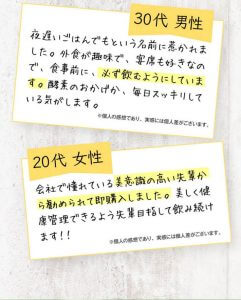 30代 男性
夜遅いごはんでもという名前に惹かれま
した。外食が趣味で、宴席も好きなの
で、食事前に、必ず飲むようにしていま
す。酵素のおかげか、毎日スッキリして
いる気がします。
※個人の感想であり、実感には個人差がございます。
20代 女性
会社で憧れている美意識の高い先輩か
ら勧められて即購入しました。美しく健
康管理できるよう先輩目指して飲み続け
ます!!
※個人の感想であり、実感には個人差がございます。